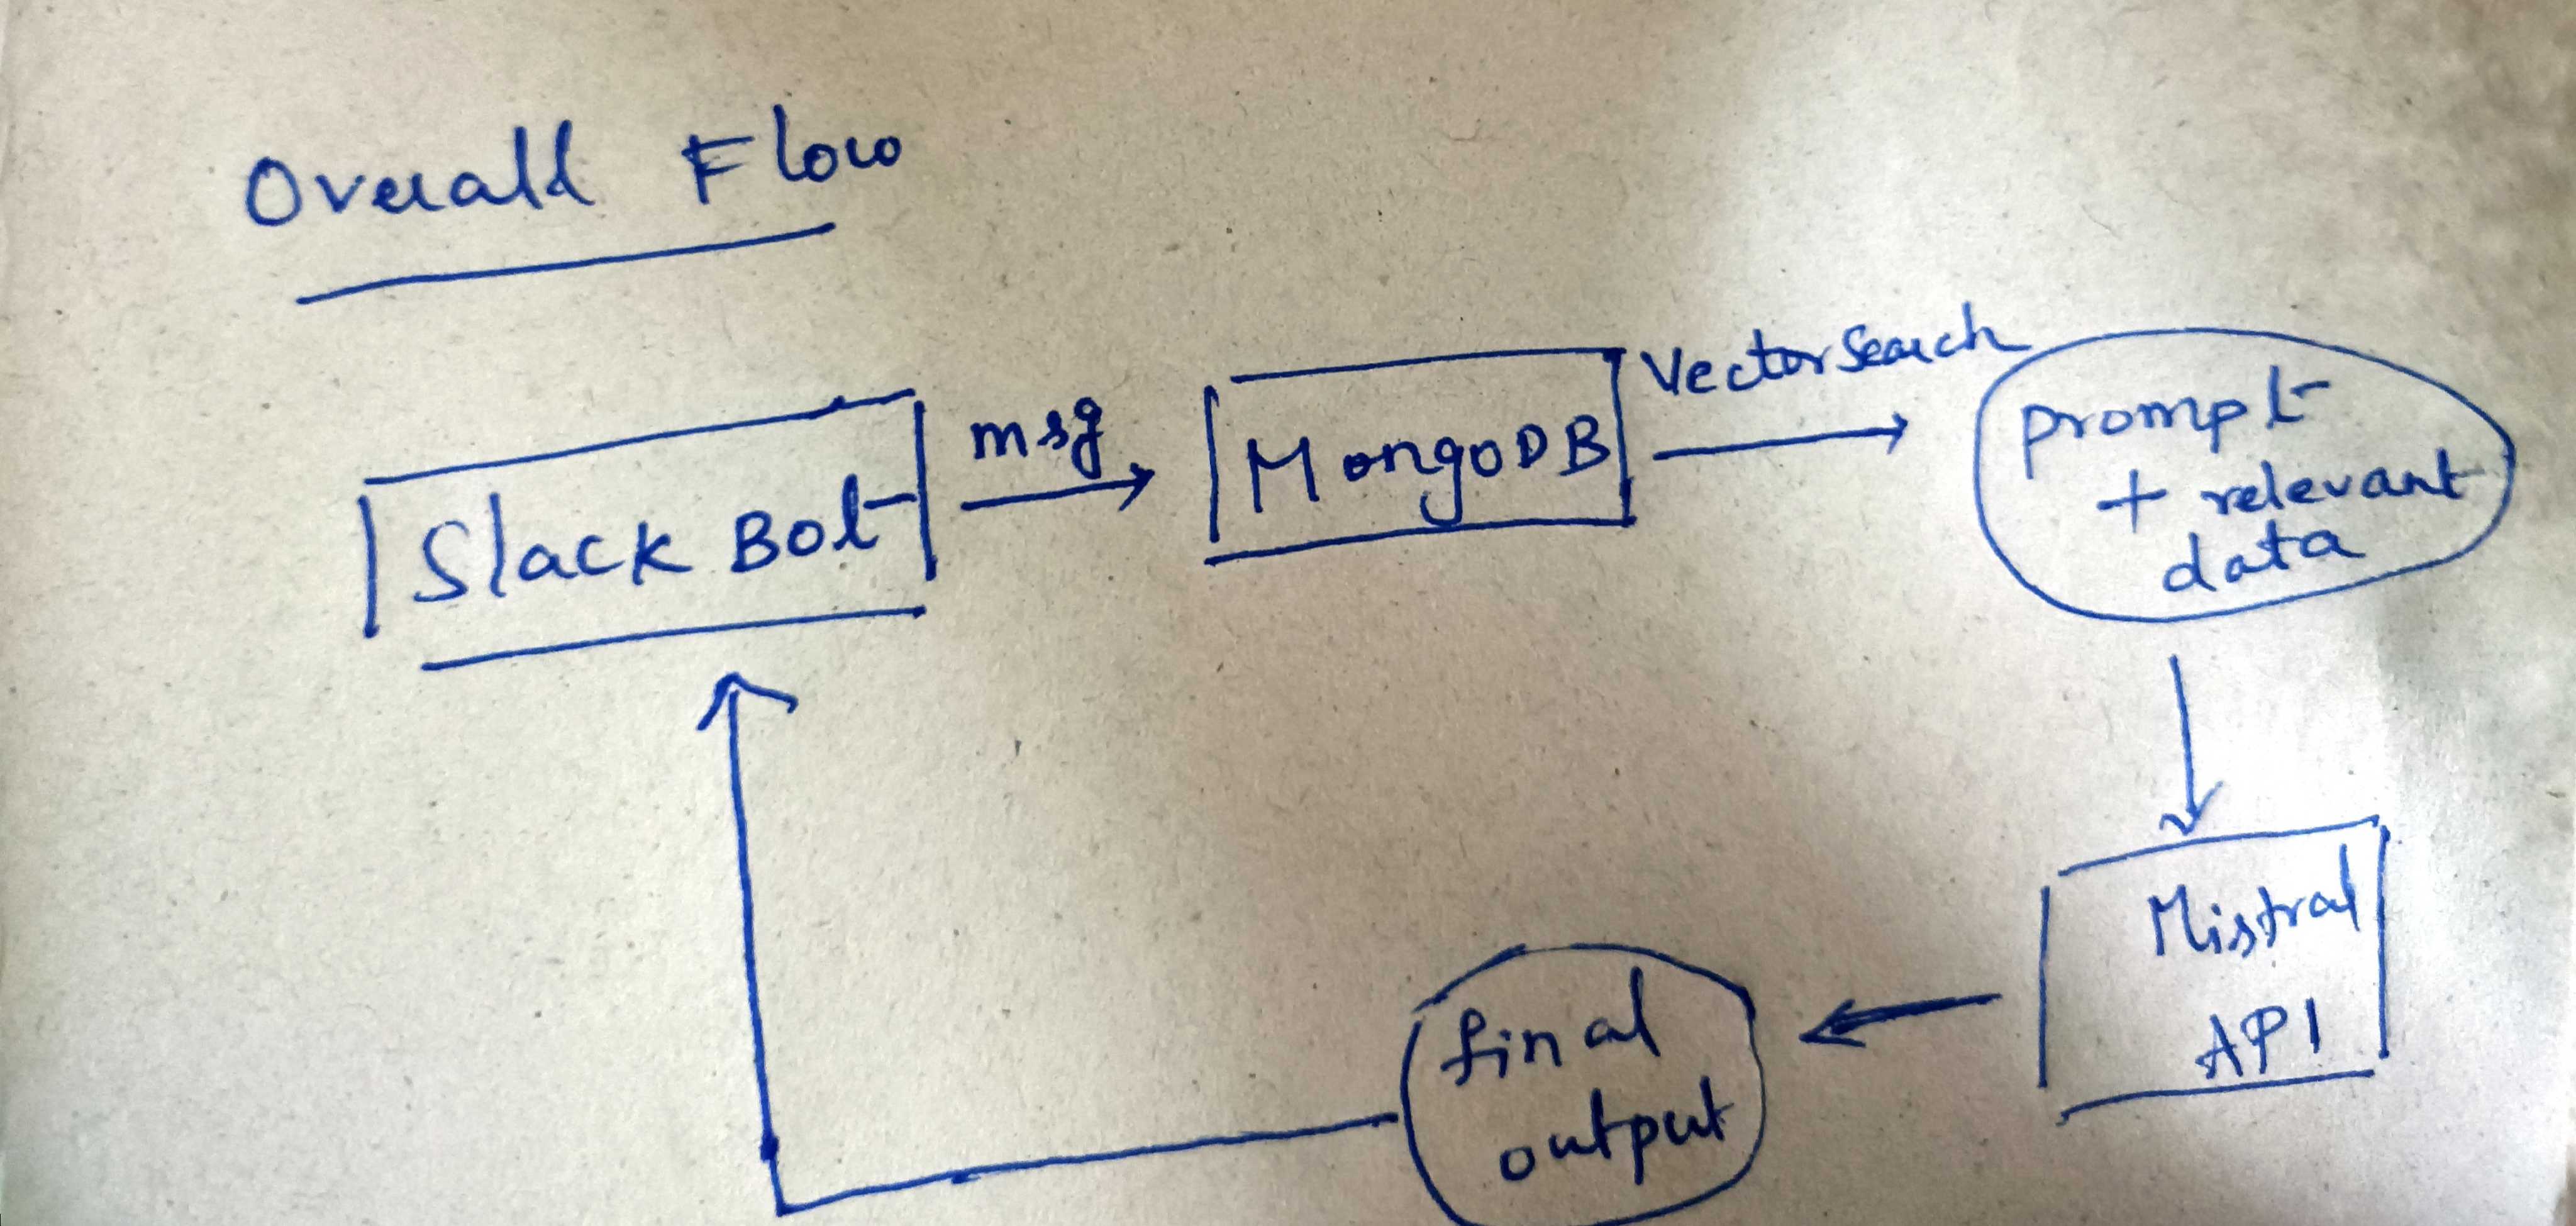 Overall Flow
Slack Bot
msg
MongoDB
Vector Search
prompt
+ relevant
data
Mistral
API
final
output